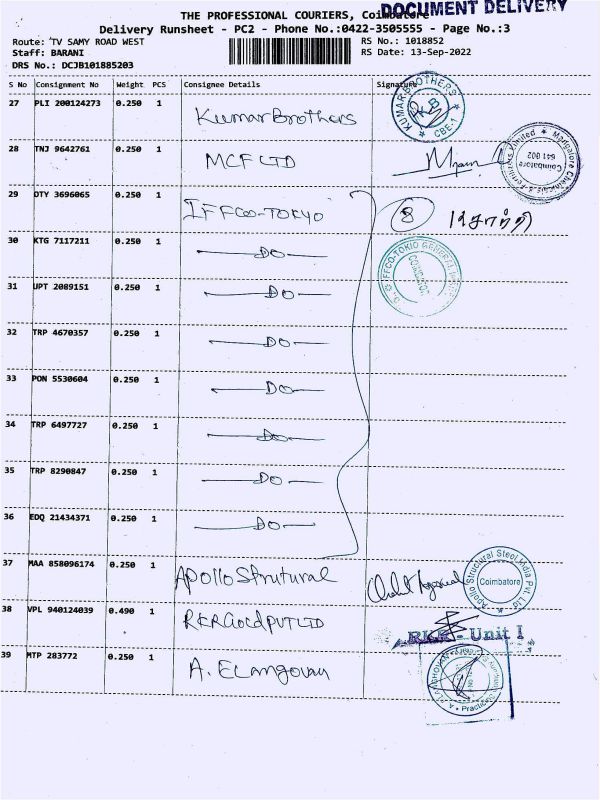 THE PROFESSIONAL COURIERS, Coimbatore
DOCUMENT DELIVERY
Delivery Runsheet - PC2 - Phone No.:0422-3505555 - Page No.:3
Route: TV SAMY ROAD WEST
RS No.: 1018852
Staff: BARANI
RS Date: 13-Sep-2022
DRS No.: DCJB101885203
S No Consignment No Weight PCS Consignee Details Signature
27 PLI 200124273 0.250 1 Kumar Brothers
KUMAR BROTHERS CBE-1
28 TNJ 9642761 0.250 1 MCF LTD
Mangalore Chemicals & Fertilizers Limited Coimbatore 641 002
29 DTY 3696065 0.250 1 IFFCO-TOKYO 8
30 KTG 7117211 0.250 1 DO
31 UPT 2089151 0.250 1 DO
32 TRP 4670357 0.250 1 DO
33 PON 5530604 0.250 1 DO
34 TRP 6497727 0.250 1 DO
35 TRP 8290847 0.250 1 DO
36 EDQ 21434371 0.250 1 DO
37 MAA 858096174 0.250 1 Apollo Strutural
Apollo Structural Steel India Pvt. Ltd Coimbatore
38 VPL 940124039 0.490 1
RKR - Unit I
39 MTP 283772 0.250 1 A. Elangovan